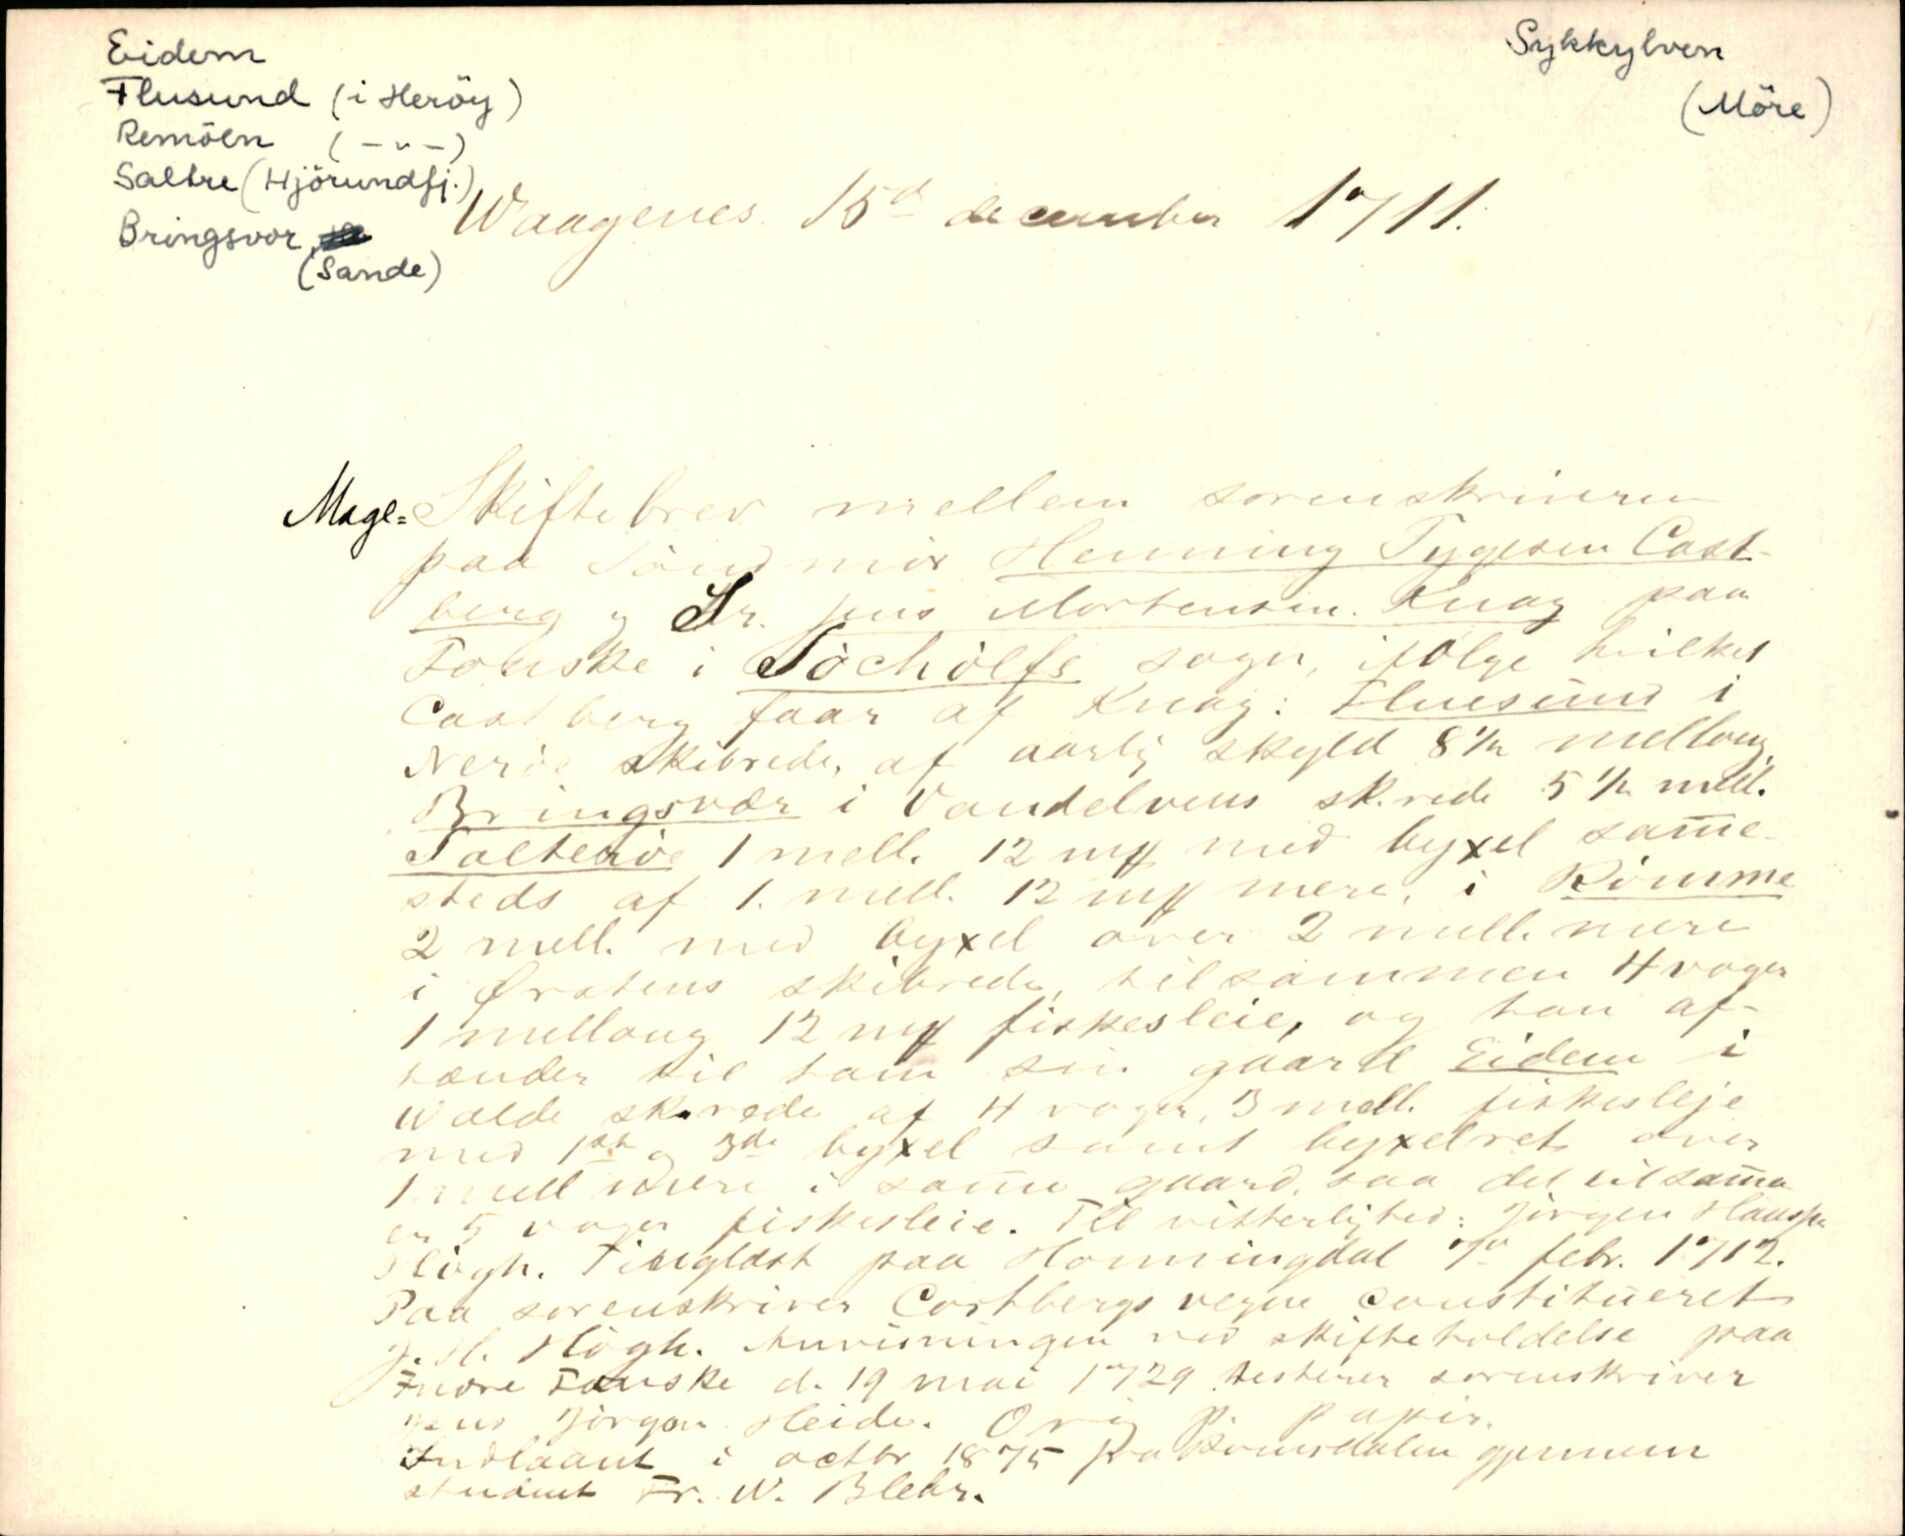 Eidem
Flusund (i Heröy)
Remöen ( – " – )
Saltre (Hjörundfj.)
Bringsvor,
(Sande)
Sykkylven
(Möre)
Waagenes 15d december 1711.
Mage=Skiftebrev mellem sorenskriveren
paa Söndmör Henning Tygesen Cast-
berg og Sr. Jens Mortensen Knag paa
Fouske i Söchölfs sogn, ifölge hvilket
Castberg faar af Knag: Fluesund i
Neröe skibrede, af aarlig skyld 8 1/2 mellaug,
Bringsvær i Vandelvens sk.rede 5 1/2 mell.
Salteröe 1 mell. 12 m℔ med byxel samme-
steds af 1. mell. 12 m℔ mere, i Römme
2 mell. med byxel over 2 mell. mere
i Ørstens skibrede, tilsammen 4 voger
1 mellaug 12 m℔ fiskesleie, og han af-
hænder til ham sin gaard Eidem i
Walde sk.rede af 4 voger, 3 mell. fiskesleje
med 1ste og 3de byxel samt byxelret over
1 mell mere i samme gaard, saa det tilsamma
er 5 voger fiskesleie. Til vitterlighed: Jörgen
Högh. Tinglæst paa Homningdal febr. 1712.
Paa sorenskriver Castbergs vegne constitueret
J. H. Högh. Anvisningen ved skifteholdelse paa
Indre Fauske d. 19 mai 1729 testerer sorenskriver
Jens Jörgen Heide. Orig p. papir.
Indlaant i octbr 1875 fra Romsdalen gjennem
student Fr. W. Blehr.